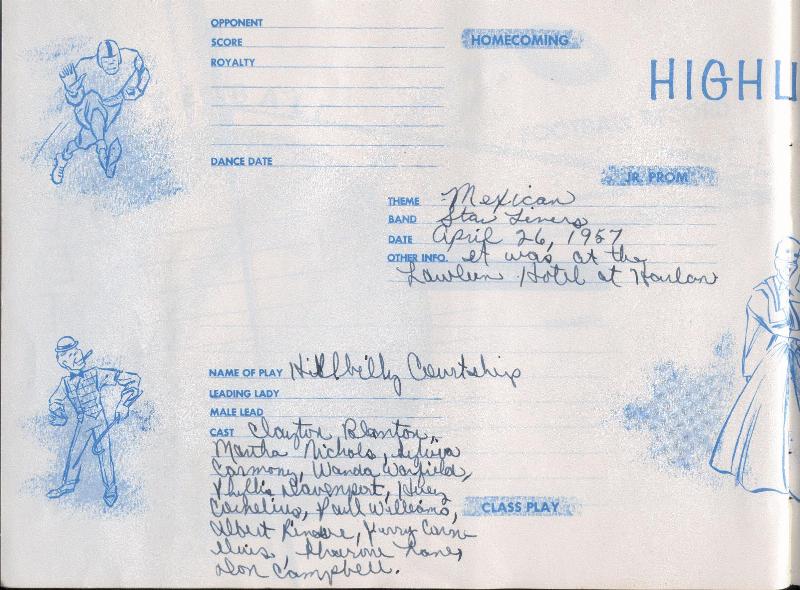 OPPONENT
SCORE
HOMECOMING
ROYALTY
HIGHL
DANCE DATE
JR. PROM
THEME Mexican
BAND Star Liners
DATE April 26, 1957
OTHER INFO. it was at the
Hotel at Harlan
NAME OF PLAY Hillbilly Courtship
LEADING LADY
MALE LEAD
CAST Clayton Blanton,
Martha Nichols, Sylvia
Carmony, Wanda Warfield,
Phyllis Davenport,
Cornelius, Paul Williams,
CLASS PLAY
Albert
Sharone
Don Campbell.